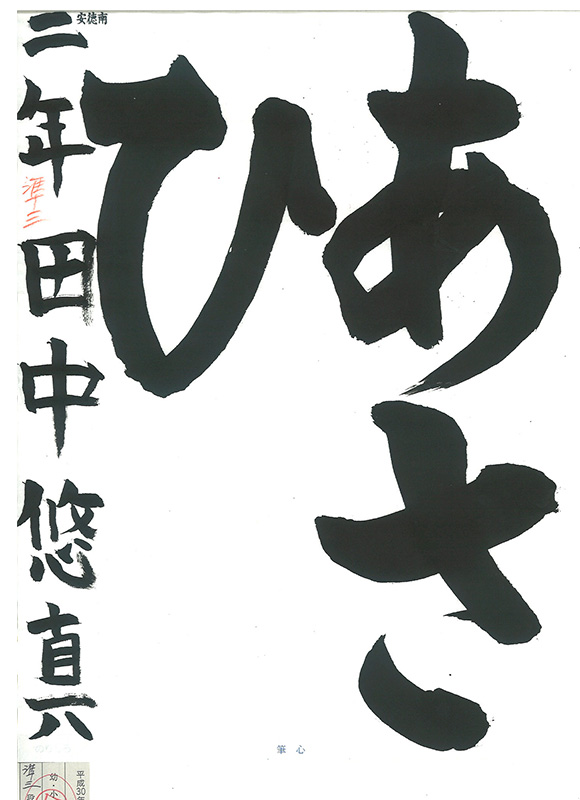 あさ
ひ
南徳安
二年田中悠真
準三
心筆
平成30年
幼・小
準三